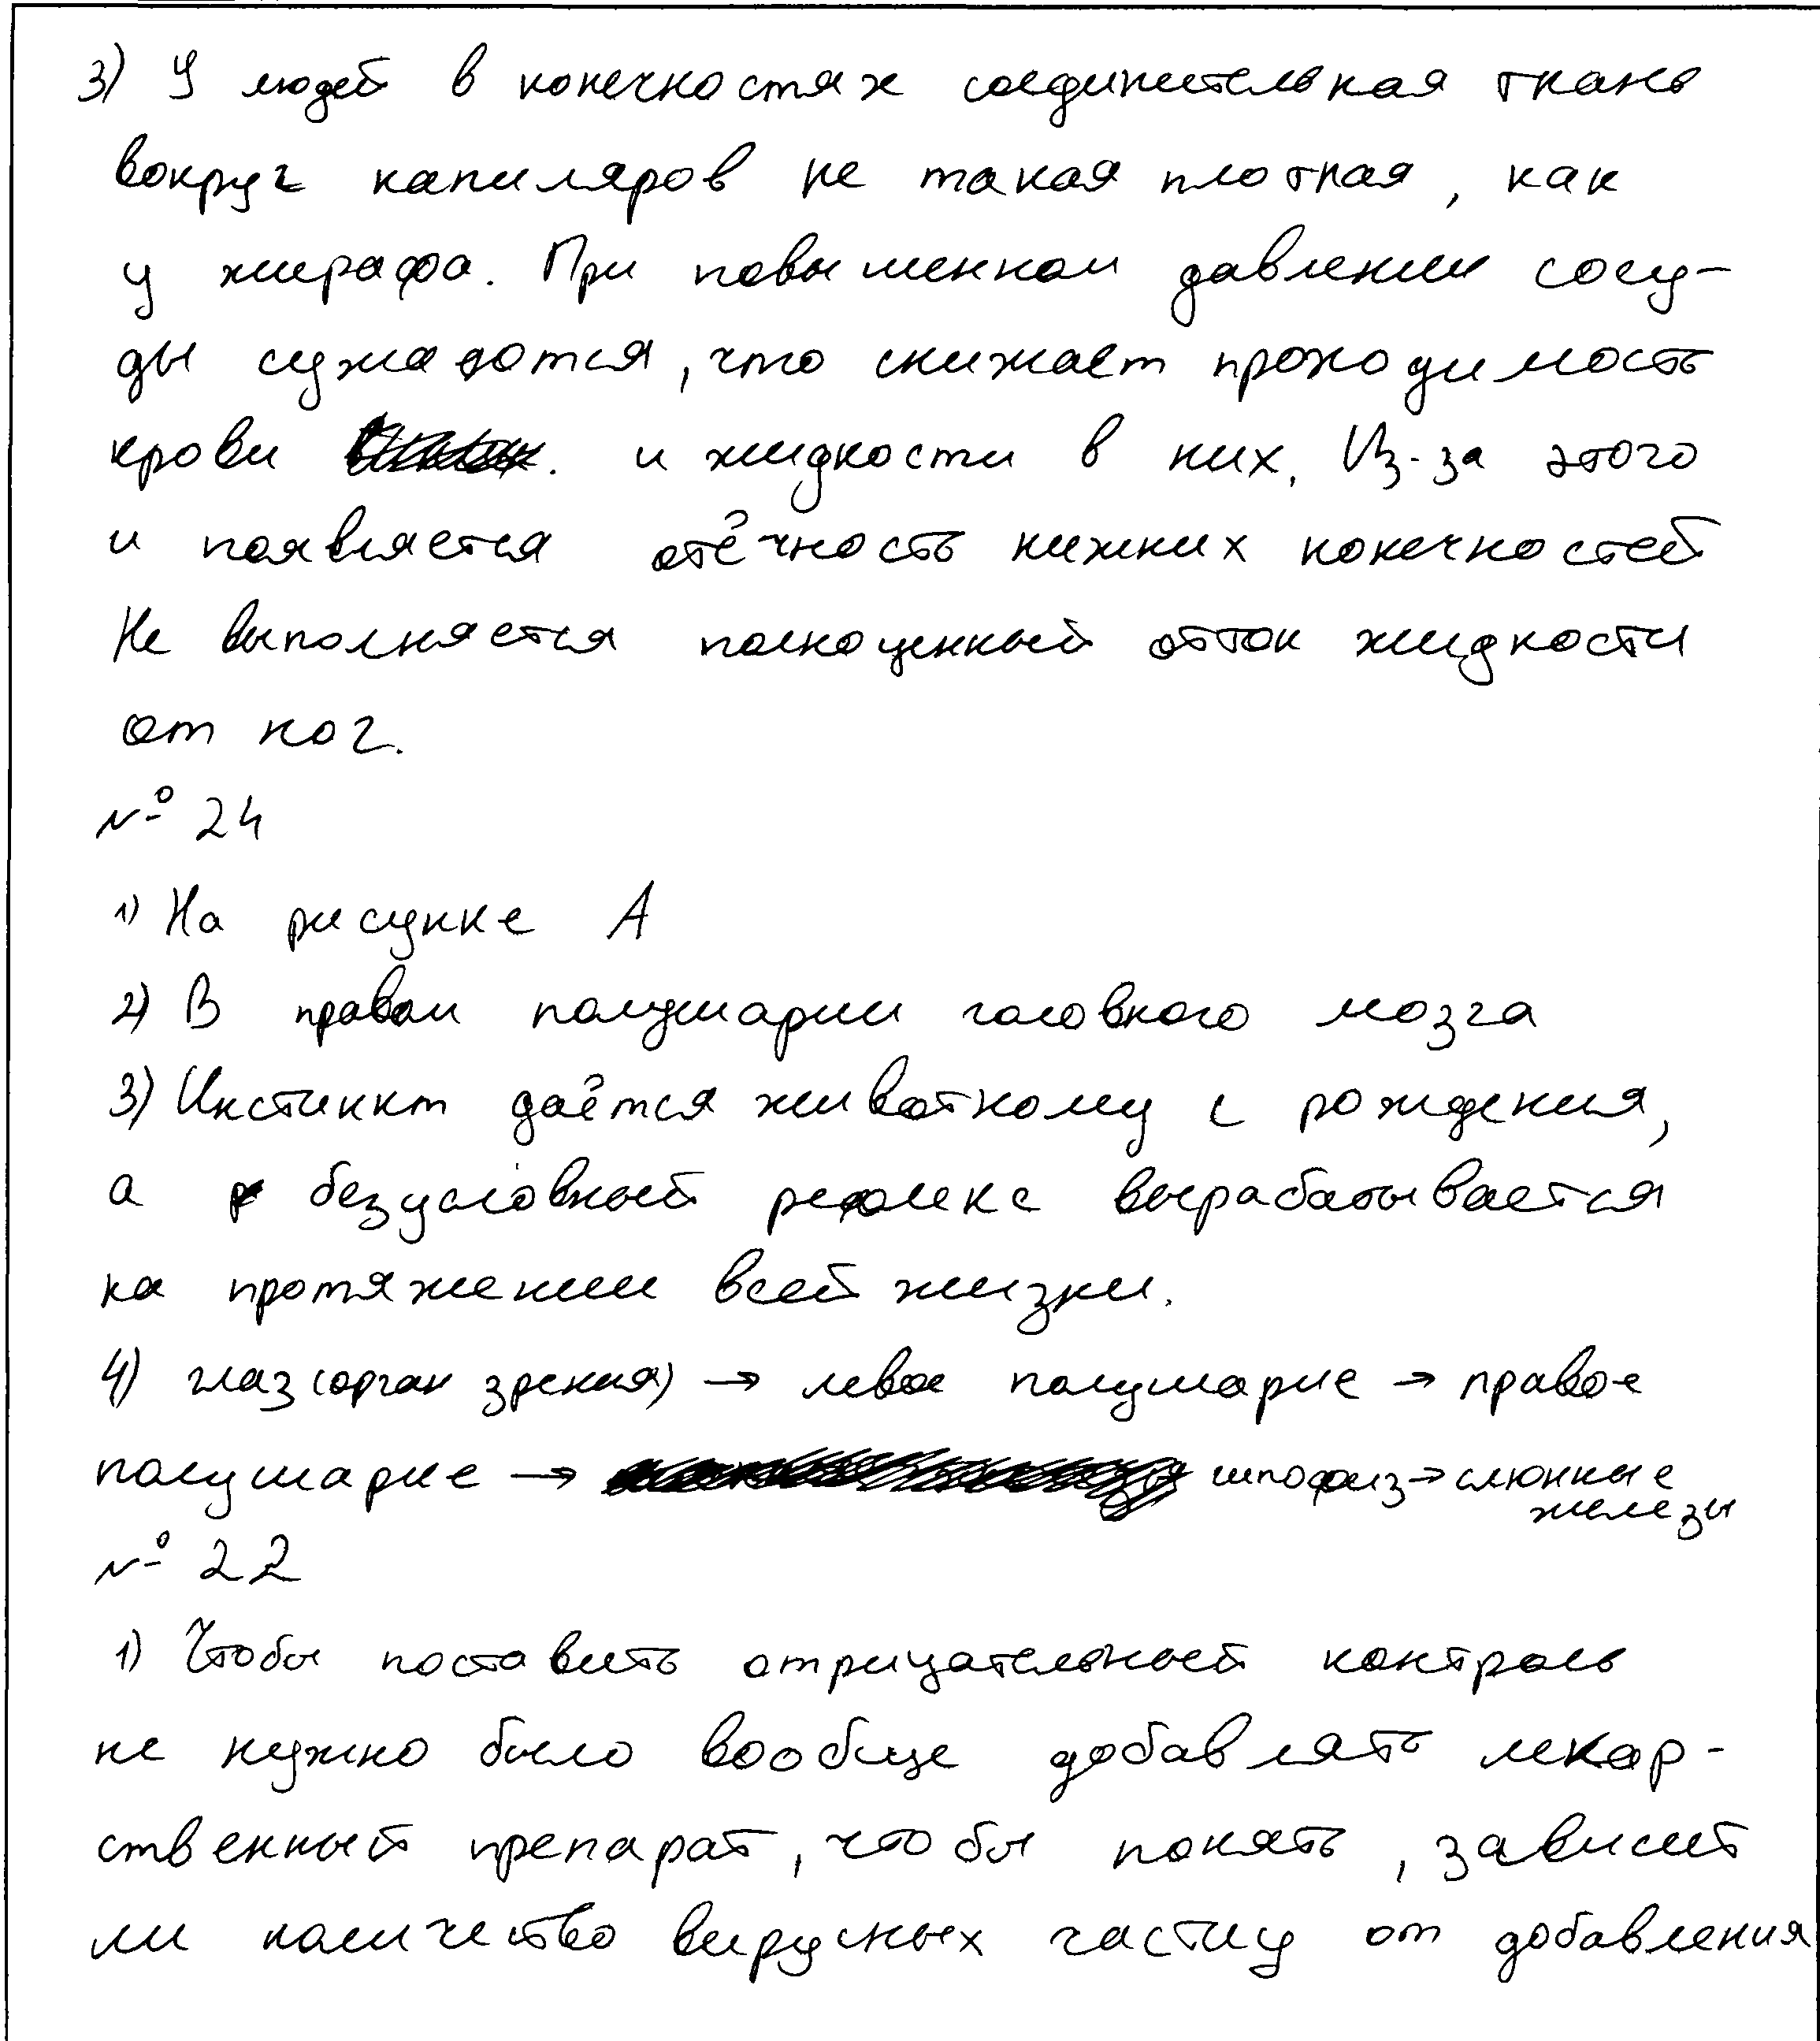 3) У людей в конечностях соединительная ткань
вокруг капиляров не такая плотная, как
у жирафа. При повышенном давлении сосу-
ды сужаются, что снижает проходимость
крови и жидкости в них. Из-за этого
и появляется отёчность нижних конечностей
Не выполняется полноценный отток жидкости
от ног.
№ 24
1) На рисунке А
2) В правом полушарии головного мозга
3) Инстинкт даётся животному с рождения,
а безусловный рефлекс вырабатывается
на протяжении всей жизни.
4) глаз (орган зрения) → левое полушарие → правое
полушарие → гипофиз → слюнные
железы
№ 22
1) Чтобы поставить отрицательный контроль
не нужно было вообще добавлять лекар-
ственный препарат, чтобы понять, зависит
ли количество вирусных частиц от добавления